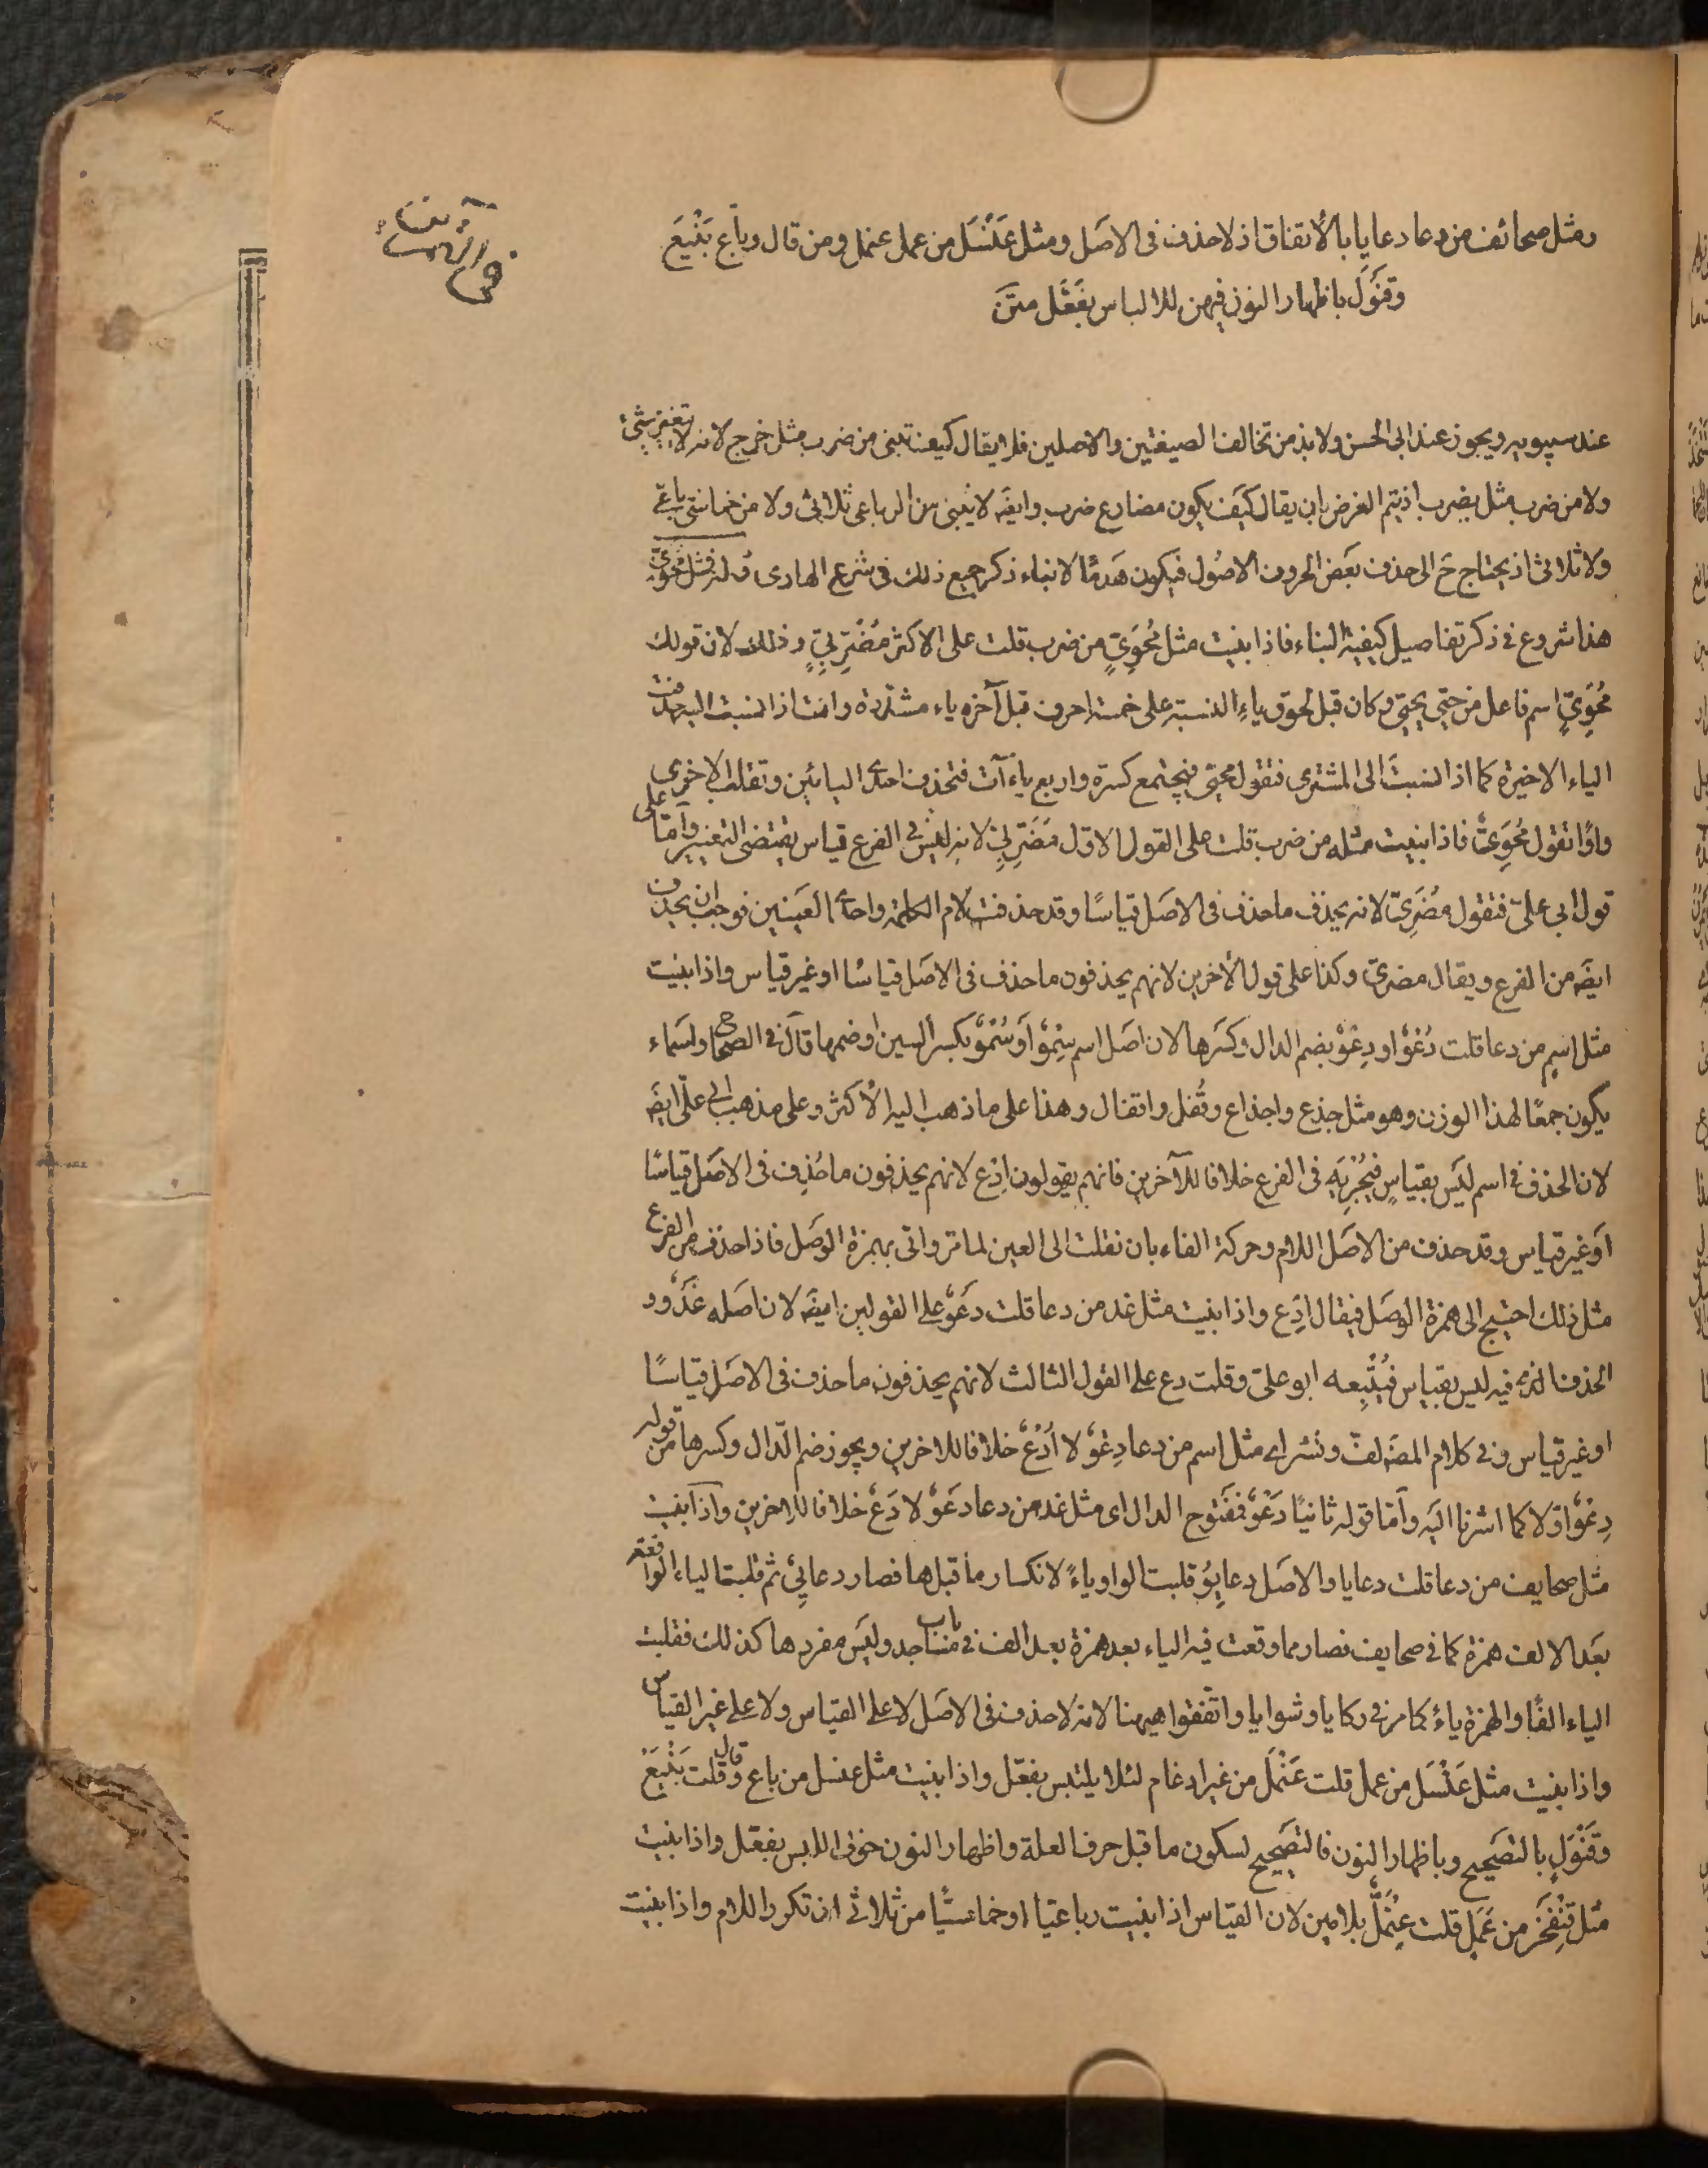 ومثل صحائف من دعا دعايا بالاتفاق اذ لا حذف فى الاصل ومثل عَنْسَل من عمل عنمل ومن قال وباع بَنْيَع
وقَنْوَل باظهار النون فيهن للالباس بفَعَّل متن
عند سيبويه ويجوز عند ابى الحسن ولا بد من تخالف الصيغتين والاصلين فلا يقال كيف تبنى من ضرب مثل خرج لانه لا تغير شئ
ولا من ضرب مثل يضرب اذ يتم الغرض بان يقال كيف يكون مضارع ضرب وايضه لا يبنى من الرباعى ثلاثى ولا من خماسى رباعى
ولا ثلاثى اذ يحتاج ح الى حذف بعض الحروف الاصول فيكون هدمًا لا بناء ذكر جميع ذلك فى شرح الهادى قوله فمثل مُحَوِىّ
هذا شروع فى ذكر تفاصيل كيفية البناء فاذا بنيت مثل مُحَوِىٍّ من ضرب قلت على الاكثر مُضَرِّبِىّ وذلك لان قولك
مُحَوِىّ اسم فاعل من حيّى يحيّى وكان قبل لحوق ياء النسبة على خمسة احرف قبل آخره ياء مشددة وانت اذا نسبت اليه حذفت
الياء الاخيرة كما اذا نسبت الى المشترى فتقول محيّى فيجتمع كسرة واربع ياءآت فتحذف احدى اليائين وتقلب الاخرى
واوًا تقول مُحَوِىٌّ فاذا بنيت مثله من ضرب قلت على القول الاول مُضَرِّبِىّ لانه ليس فى الفرع قياس يقتضى التغيير وامّا على
قول ابى علىّ فتقول مُضَرِىّ لانه يحذف ما حذف فى الاصل قياسًا وقد حذفت لام الكلمة واحدى العينين فوجب ان يحذف
ايضه من الفرع ويقال مضرىّ وكذا على قول الآخرين لانهم يحذفون ما حذف فى الاصل قياسًا او غير قياس واذا بنيت
مثل اسمٍ من دعا قلت دُعْوٌ او دِعْوٌ بضم الدال وكسرها لان اصل اسم سِمْوٌ او سُمْوٌ بكسر السين او ضمها قال فى الصحاح واسماء
يكون جمعًا لهذا الوزن وهو مثل جذع واجذاع وقُفل واقفال وهذا على ما ذهب اليه الاكثر وعلى مذهب ابى علىّ ايضه
لان الحذف فى اسم ليس بقياسٍ فيُجْرِيَه فى الفرع خلافا للآخرين فانهم يقولون اِدْع لانهم يحذفون ما حُذِف فى الاصل قياسًا
او غير قياس وقد حذف من الاصل اللام وحركة الفاء بان نقلت الى العين لما مر واتى بهمزة الوصل فاذا حذف من الفرع
مثل ذلك احتيج الى همزة الوصل فيقال اِدْع واذا بنيت مثل غد من دعا قلت دَعْوٌ على القولين ايضه لان اصله غَدْوٌ و
الحذف الذى فيه ليس بقياس فيُتْبِعه ابو علىّ وقلت دع على القول الثالث لانهم يحذفون ما حذف فى الاصل قياسًا
او غير قياس وفى كلام المصه لفّ ونشر اى مثل اسم من دعا دِعْوٌ لا اُدْعٌ خلافا للآخرين ويجوز ضم الدال وكسرها من قوله
دِعْوٌ اولا كما اشرنا اليه وأمّا قوله ثانيًا دَعْوٌ فمفتوح الدال اى مثل غد من دعا دَعْوٌ لا دَعٌ خلافا للآخرين واذا بنيت
مثل صحايف من دعا قلت دعايا والاصل دعايِوُ قلبت الواو ياءً لانكسار ما قبلها فصار دعايِىُ ثم قلبت الياء الواقعة
بعد الالف همزة كما فى صحايف فصار مما وقعت فيه الياء بعد همزة بعد الف فى باب مساجد وليس مفردها كذلك فقلبت
الياء الفًا والهمزة ياءً كما مر فى ركايا وشوايا واتّفقوا هيهنا لانه لا حذف فى الاصل لا على القياس ولا على غير القياس
واذا بنيت مثل عَنْسَل من عمل قلت عَنْمَل من غير ادغام لئلا يلتبس بفعّل واذا بنيت مثل عنسل من باع وقال قلت بَنْيَعٌ
وقَنْوَل بالتصحيح وباظهار النون فالتصحيح لسكون ما قبل حرف العلة واظهار النون خوف اللبس بفعّل واذا بنيت
مثل قِنْفَخْر من عَمَل قلت عِنْمَلٌّ بلامين لان القياس اذا بنيت رباعيّا او خماسيًّا من ثلاثى ان تكرر اللام واذا بنيت